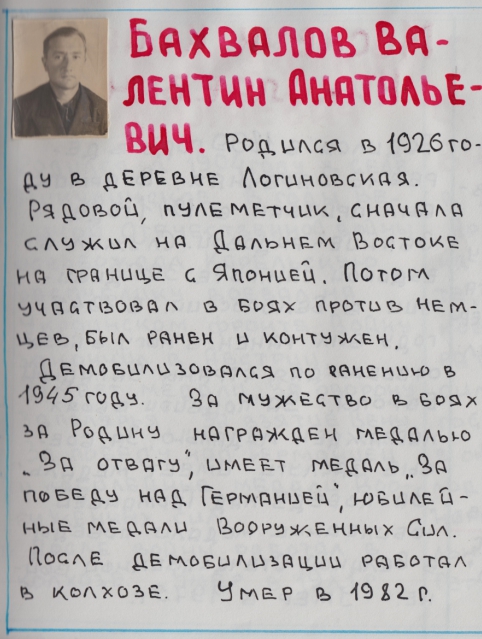 Бахвалов Ва-
лентин Анатолье-
вич. Родился в 1926 го-
ду в деревне Логиновская.
Рядовой, пулеметчик, сначала
служил на Дальнем Востоке
на границе с Японией. Потом
участвовал в боях против нем-
цев, был ранен и контужен.
Демобилизовался по ранению в
1945 году. За мужество в боях
за Родину награжден медалью
„За отвагу", имеет медаль „За
победу над Германией", юбилей-
ные медали Вооруженных Сил.
После демобилизации работал
в колхозе. Умер в 1982 г.